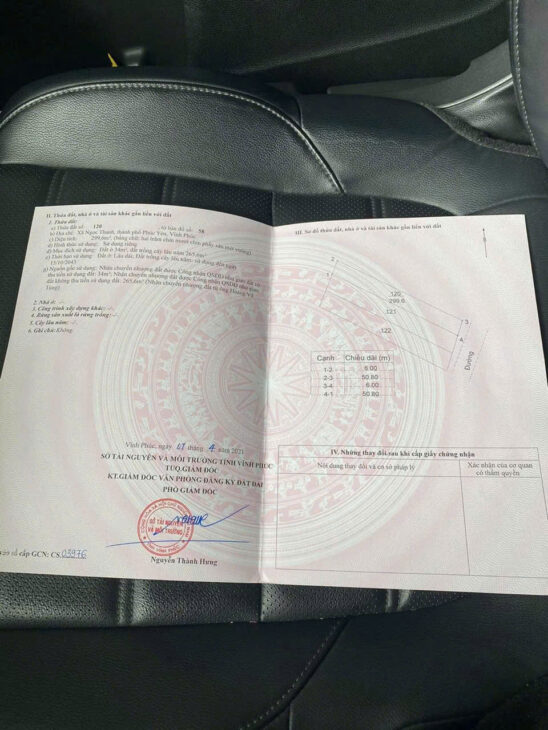 II. Thửa đất, nhà ở và tài sản khác gắn liền với đất
1. Thửa đất:
a) Thửa đất số: 120 , tờ bản đồ số: 58
b) Địa chỉ: Xã Ngọc Thanh, thành phố Phúc Yên, Vĩnh Phúc
c) Diện tích: 299,6m², (bằng chữ: hai trăm chín mươi chín phẩy sáu mét vuông)
d) Hình thức sử dụng: Sử dụng riêng
đ) Mục đích sử dụng: Đất ở 34m², đất trồng cây lâu năm 265.6m²
e) Thời hạn sử dụng: Đất ở: Lâu dài, Đất trồng cây lâu năm: sử dụng đến ngày
15/10/2043
g) Nguồn gốc sử dụng: Nhận chuyển nhượng đất được Công nhận QSDĐ như giao đất có
thu tiền sử dụng đất: 34m²; Nhận chuyển nhượng đất được Công nhận QSDĐ như giao
đất không thu tiền sử dụng đất: 265.6m² (Nhận chuyển nhượng đất từ ông Hoàng Vă
Tùng)
2. Nhà ở: -/-
3. Công trình xây dựng khác: -/-
4. Rừng sản xuất là rừng trồng: -/-
5. Cây lâu năm: -/-
6. Ghi chú: Không.
Vĩnh Phúc, ngày 07 tháng 4 năm 2021
SỞ TÀI NGUYÊN VÀ MÔI TRƯỜNG TỈNH VĨNH PHÚC
TUQ.GIÁM ĐỐC
KT.GIÁM ĐỐC VĂN PHÒNG ĐĂNG KÝ ĐẤT ĐAI
PHÓ GIÁM ĐỐC
SỞ TÀI NGUYÊN
VÀ MÔI TRƯỜNG
Nguyễn Thành Hưng
vào sổ cấp GCN: CS.03976
III. Sơ đồ thửa đất, nhà ở và tài sản khác gắn liền với đất
2
1
120
299.6
121
122
3
4
Đường
Cạnh Chiều dài (m)
1-2 6.00
2-3 50.80
3-4 6.00
4-1 50.80
IV. Những thay đổi sau khi cấp giấy chứng nhận
Nội dung thay đổi và cơ sở pháp lý
Xác nhận của cơ quan
có thẩm quyền